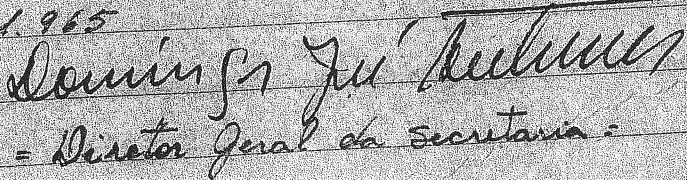 1.965
Domingos José Antunes
= Diretor Geral da Secretaria =